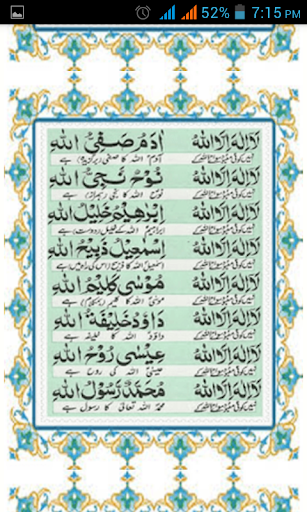 52% 7:15 PM
لَا اِلٰهَ اِلَّا اللّٰهُ اٰدَمُ صَفِيُّ اللّٰهِ
نہیں کوئی معبود سوا اللہ کے آدمؑ اللہ کا صفی (برگزیدہ) ہے
لَا اِلٰهَ اِلَّا اللّٰهُ نُوْحٌ نَجِيُّ اللّٰهِ
نہیں کوئی معبود سوا اللہ کے نوحؑ اللہ کا نجی (ہمراز) ہے
لَا اِلٰهَ اِلَّا اللّٰهُ اِبْرٰهِيْمُ خَلِيْلُ اللّٰهِ
نہیں کوئی معبود سوا اللہ کے ابراہیمؑ اللہ کے خلیل (دوست) ہے
لَا اِلٰهَ اِلَّا اللّٰهُ اِسْمٰعِيْلُ ذَبِيْحُ اللّٰهِ
نہیں کوئی معبود سوا اللہ کے اسمٰعیلؑ اللہ کا ذبیح (اس کی راہ میں ہے
لَا اِلٰهَ اِلَّا اللّٰهُ مُوْسٰى كَلِيْمُ اللّٰهِ
نہیں کوئی معبود سوا اللہ کے موسیٰؑ اللہ کا کلیم (ہمکلام) ہے
لَا اِلٰهَ اِلَّا اللّٰهُ دَاوٗدُ خَلِيْفَةُ اللّٰهِ
نہیں کوئی معبود سوا اللہ کے داؤدؑ اللہ کا خلیفہ ہے
لَا اِلٰهَ اِلَّا اللّٰهُ عِيْسٰى رُوْحُ اللّٰهِ
نہیں کوئی معبود سوا اللہ کے عیسیٰؑ اللہ کی روح ہے
لَا اِلٰهَ اِلَّا اللّٰهُ مُحَمَّدٌ رَّسُوْلُ اللّٰهِ
نہیں کوئی معبود سوا اللہ کے محمدؐ اللہ تعالیٰ کا رسول ہے